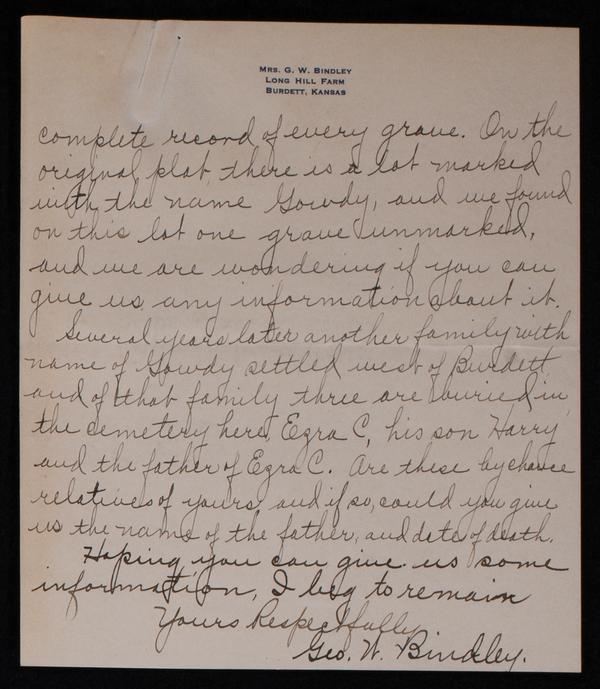 Mrs. G. W. Bindley
Long Hill Farm
Burdett, Kansas
complete record of every grave. On the
original plat, there is a lot marked
with the name Gowdy, and we found
on this lot one grave unmarked,
and we are wondering if you can
give us any information about it.
Several years later another family with
name of Gowdy settled west of Burdett,
and of that family three are buried in
the cemetery here, Ezra C, his son Harry,
and the father of Ezra C. Are these by chance
relatives of yours, and if so, could you give
us the name of the father, and date of death.
Hoping you can give us some
information, I beg to remain
Yours Respectfully
Geo. W. Bindley.